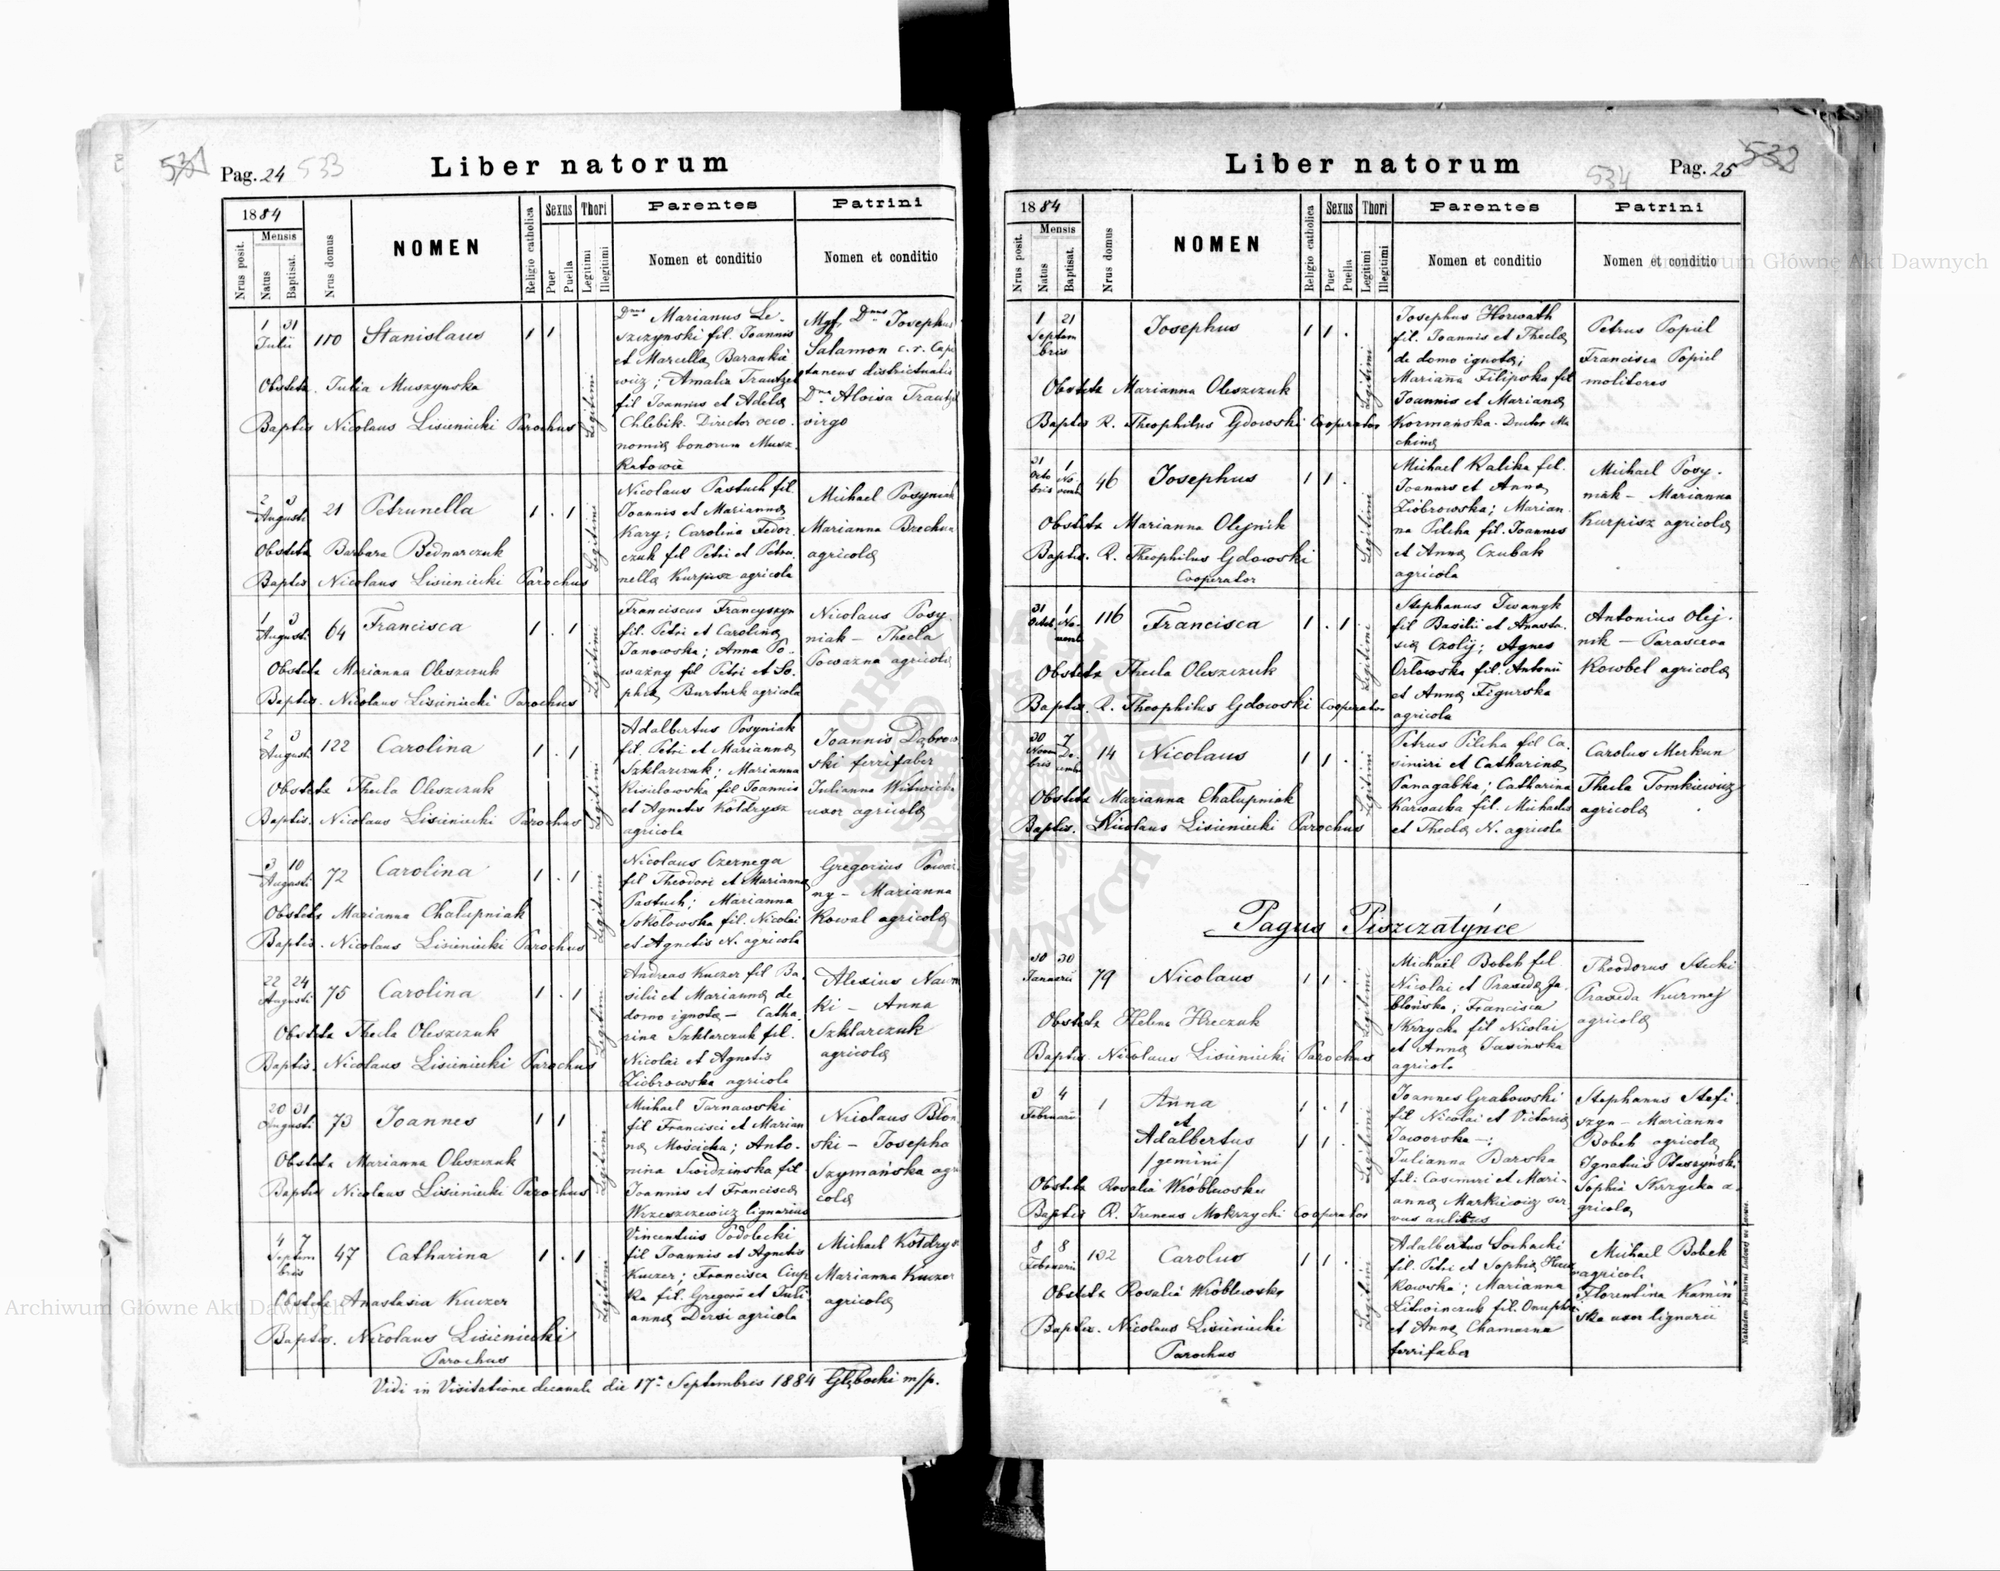 531 Pag. 24 533 Liber natorum
1884
Nrus posit.
Mensis
Natus
Baptisat.
Nrus domus
NOMEN
Religio catholica
Sexus
Puer
Puella
Thori
Legitimi
Illegitimi
Parentes
Nomen et conditio
Patrini
Nomen et conditio
1 31
Julii
Stanislaus
1 1
Obstetx. Julia Muszynska
Baptis Nicolaus Lisieniecki Parochus
Legitimi
Dnus Marianus Le-
szczynski fil. Joannis
et Marcellæ Barankie
wicz; Amalia Trautzel
fil Joannis et Adelæ
Chlebik. Director oeco
nomiæ bonorum Musz-
katowce
Dnus Josephus
Salamon c. r. Capi
taneus districtualis
Dna Aloisa Trautzel
virgo
2 3
Augusti
21 Petrunella
1 . 1
Obstetx Barbara Bednarczuk
Baptis. Nicolaus Lisieniecki Parochus
Legitimi
Nicolaus Pastuch fil.
Joannis et Mariannæ
Kary; Carolina Fedor
czuk fil Petri et Petru
nellæ Kurpisz agricola
Michael Posyniak
Marianna Brechun
agricolæ
1 3
Augusti
64 Francisca
1 . 1
Obstetx Marianna Oleszczuk
Baptis. Nicolaus Lisieniecki Parochus
Legitimi
Franciscus Francyszyn
fil. Petri et Carolinæ
Janowska; Anna Po-
ważny fil Petri et So-
phiæ Burturk agricola
Nicolaus Posy-
niak — Thecla
Poważna agricolæ
2 3
Augusti
122 Carolina
1 . 1
Obstetx Thecla Oleszczuk
Baptis. Nicolaus Lisieniecki Parochus
Legitimi
Adalbertus Posyniak
fil. Petri et Mariannæ
Szklarczuk; Marianna
Kisielowska fil Joannis
et Agnetis Kołdrysz
agricola
Joannis Dąbrow
ski ferrifaber
Julianna Witwicka
uxor agricolæ
3 10
Augusti
72 Carolina
1 . 1
Obstetx Marianna Chałupniak
Baptis. Nicolaus Lisieniecki Parochus
Legitimi
Nicolaus Czernega
fil Theodori et Mariannæ
Pastuch; Marianna
Sokołowska fil. Nicolai
et Agnetis N. agricola
Gregorius Poważ
ny — Marianna
Kowal agricolæ
22 24
Augusti
75 Carolina
1 . 1
Obstetx Thecla Oleszczuk
Baptis. Nicolaus Lisieniecki Parochus
Legitimi
Andreas Kuczer fil Ba-
silii et Mariannæ de
domo ignota — Catha
rina Szklarczuk fil.
Nicolai et Agnetis
Ziobrowska agricola
Alexius
ki — Anna
Szklarczuk
agricolæ
20 31
Augusti
73 Joannes
1 1
Obstetx Marianna Oleszczuk
Baptis Nicolaus Lisieniecki Parochus
Legitimi
Michael Tarnawski
fil Francisci et Marian
næ Mościcka; Anto-
nina Swidzinska fil
Joannis et Franciscæ
Wrzeszczewicz lignarius
Nicolaus Błon
ski — Josepha
Szymańska agri
colæ
4 7
Septem
bris
47 Catharina
1 . 1
Obstetx Anastasia Kuczer
Baptis. Nicolaus Lisieniecki
Parochus
Legitimi
Vincentius Podolecki
fil Joannis et Agnetis
Kuczer; Francisca Ciup
ka fil. Gregorii et Juli
annæ Dersi agricola
Michael Kołdrys
Marianna Kuczer
agricolæ
Vidi in Visitatione decanali die 17a Septembris 1884 Głębocki m/p.
Liber natorum 534 Pag. 25 532
1884
Nrus posit.
Mensis
Natus
Baptisat.
Nrus domus
NOMEN
Religio catholica
Sexus
Puer
Puella
Thori
Legitimi
Illegitimi
Parentes
Nomen et conditio
Patrini
Nomen et conditio
1 21
Septem
bris
Josephus
1 1 .
Obstetx Marianna Oleszczuk
Baptis R. Theophilus Gdowski Cooperator
Legitimi
Josephus Horwath
fil. Joannis et Theclæ
de domo ignotæ;
Marianna Filipska fil
Joannis et Mariannæ
Kormańska. Ductor Ma
chinæ
Petrus Popiel
Francisca Popiel
molitores
31 1
Octo No-
bris vemb
46 Josephus
1 1 .
Obstetx Marianna Olejnik
Baptis. R. Theophilus Gdowski
Cooperator
Legitimi
Michael Kalika fil.
Joannis et Annæ
Ziobrowska; Marian-
na Pilcha fil. Joannis
et Annæ Czubak
agricola
Michael Posy-
niak — Marianna
Kurpisz agricolæ
31 1
116 Francisca
1 . 1
Obstetx Thecla Oleszczuk
Baptis. R. Theophilus Gdowski Cooperator
Legitimi
Stephanus Iwanyk
fil Basilii et Anasta-
siæ Czolij; Agnes
Orlowska fil. Antonii
et Annæ Figurska
agricola
Antonius Olej-
nik — Parasceva
Kowbel agricolæ
30 7
Novem De-
bris cemb
14 Nicolaus
1 1 .
Obstetx Marianna Chałupniak
Baptis. Nicolaus Lisieniecki Parochus
Legitimi
Petrus Pilcha fil Ca-
simiri et Catharinæ
Panagabka; Catharina
Karwacka fil. Michaelis
et Theclæ N. agricola
Carolus Merkun
Thecla Tomkiewicz
agricolæ
Pagus Piszczatyńce
30 30
Januarii
79 Nicolaus
1 1 .
Obstetx Helena Hreczuk
Baptis Nicolaus Lisieniecki Parochus
Legitimi
Michaël Bobek fil
Nicolai et Praxedæ Ja-
błońska; Francisca
Skrzycka fil Nicolai
et Annæ Jasinska
agricola
Theodorus Stecki
Praxeda Kuzmej
agricolæ
3 4
Februarii
1 Anna
et
Adalbertus
/gemini/
1 . 1
1 1 .
Obstetx Rosalia Wróblewska
Baptis R. Ireneus Mokrzycki Cooperator
Legitimi
Joannes Grabowski
fil Nicolai et Victoriæ
Jaworska —;
Julianna Barska
fil. Casimiri et Mari-
annæ Markiewicz ser-
vus aulicus
Stephanus Stefi
szyn — Marianna
Bobek agricolæ
Ignatius Staszyński
Sophia Skrzycka a-
gricolæ
8 8
Februarii
102 Carolus
1 1 .
Obstetx Rosalia Wróblewska
Baptis. Nicolaus Lisieniecki
Parochus
Legitimi
Adalbertus Sochacki
fil. Petri et Sophiæ
kowska; Marianna
Litwinczuk fil. Onuphrii
et Annæ Chamarna
ferrifaber
Michael Bobek
agricola
Florentina Kamin
ska uxor lignarii
Nakładem Drukarni Ludowej we Lwowie.
Archiwum Główne Akt Dawnych
Archiwum Główne Akt Dawnych